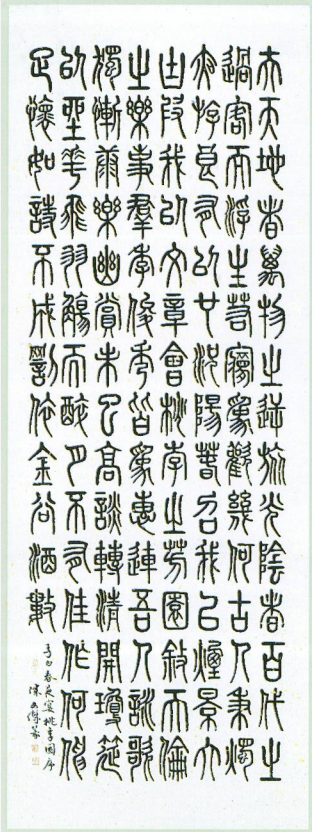 夫天地者萬物之逆旅光陰者百代之
過客而浮生若夢為歡幾何古人秉燭
夜游良有以也況陽春召我以煙景大
塊假我以文章會桃李之芳園敘天倫
之樂事群季俊秀皆為惠連吾人詠歌
獨慚康樂幽賞未已高談轉清開瓊筵
以坐花飛羽觴而醉月不有佳作何伸
雅懷如詩不成罰依金谷酒數
李白春夜宴桃李園序